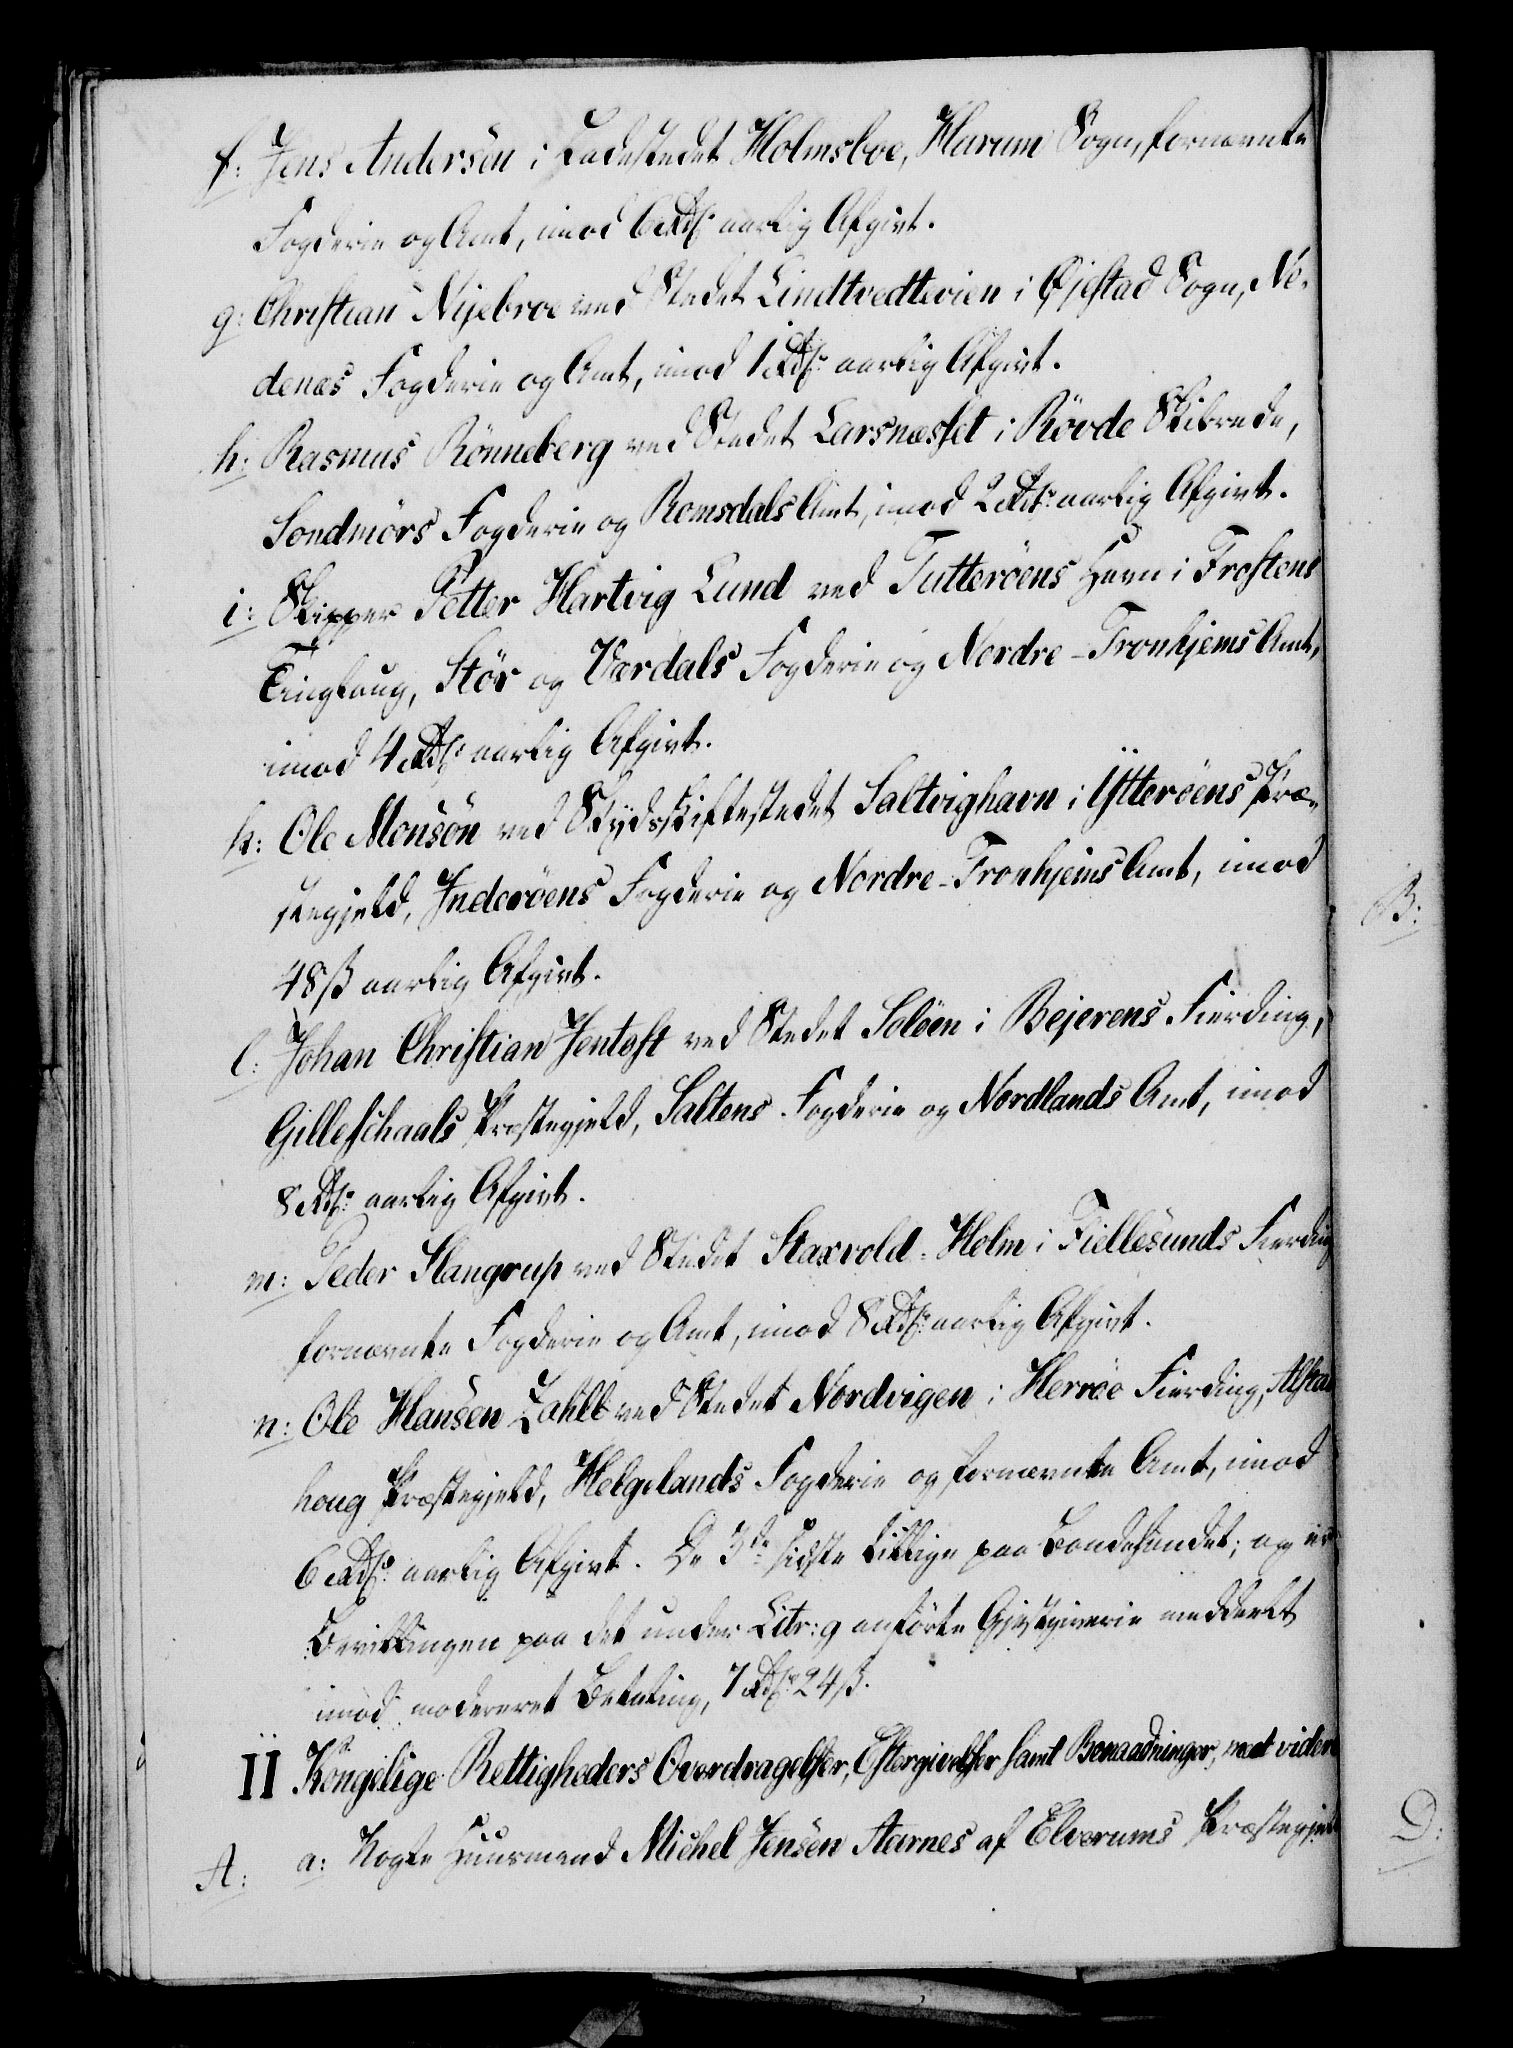 f: Jens Andersen i Ladestedet Holmsboe, Hurum Sogn, fornævnte
Fogderie og Amt, imod 6 Rdſ: aarlig Afgivt.
g: Christian Nijebroe ved Stedet Lindtvedtevien i Øjestad Sogn, Ne-
denæs Fogderie og Amt, imod 1 Rdſ: aarlig Afgivt.
h: Rasmus Rönneberg ved Stedet Larsnæsset i Rövde Skibrede,
Söndmörs Fogderie og Romsdals Amt, imod 2 Rdſ: aarlig Afgivt.
i: Skipper Petter Hartvig Lund ved Tutteröens Havn i Frostens
Tinglaug, Stör og Værdals Fogderie og Nordre-Tronhjems Amt,
imod 4 Rdſ: aarlig Afgivt.
k: Ole Monsön ved Skydsskiftestedet Saltvighavn i Ytteröens Præ-
stegjeld, Inderöens Fogderie og Nordre-Tronhjems Amt, imod
48 ß aarlig Afgivt.
l: Johan Christian Jentoft ved Stedet Solöen i Bejerens Fierding,
Gilleschaals Præstegjeld, Saltens Fogderie og Nordlands Amt, imod
8 Rdſ: aarlig Afgivt.
m: Peder Slangrup ved Stedet Staxvold-Holm i Fiellesunds Fierding
fornævnte Fogderie og Amt, imod 8 Rdſ: aarlig Afgivt.
n: Ole Hansen Zahll ved Stedet Nordvigen i Herröe Fierding, Alstad
houg Præstegjeld, Helgelands Fogderie og fornævnte Amt, imod
6 Rdſ: aarlig Afgivt. De 3de sidste tillige paa Landehandel; og er
Bevillingen paa det under Litr: g anförte Gjestgiverie meddeelt
imod modereret Betaling, 7 Rdſ: 24 ß.
II Kongelige Rettigheders Overdragelser, Eftergivelser samt Benaadninger, med videre
A: a: Nogle Huusmænd Michel Jensen Aarnes af Elverums Præstegjel
B:
D: